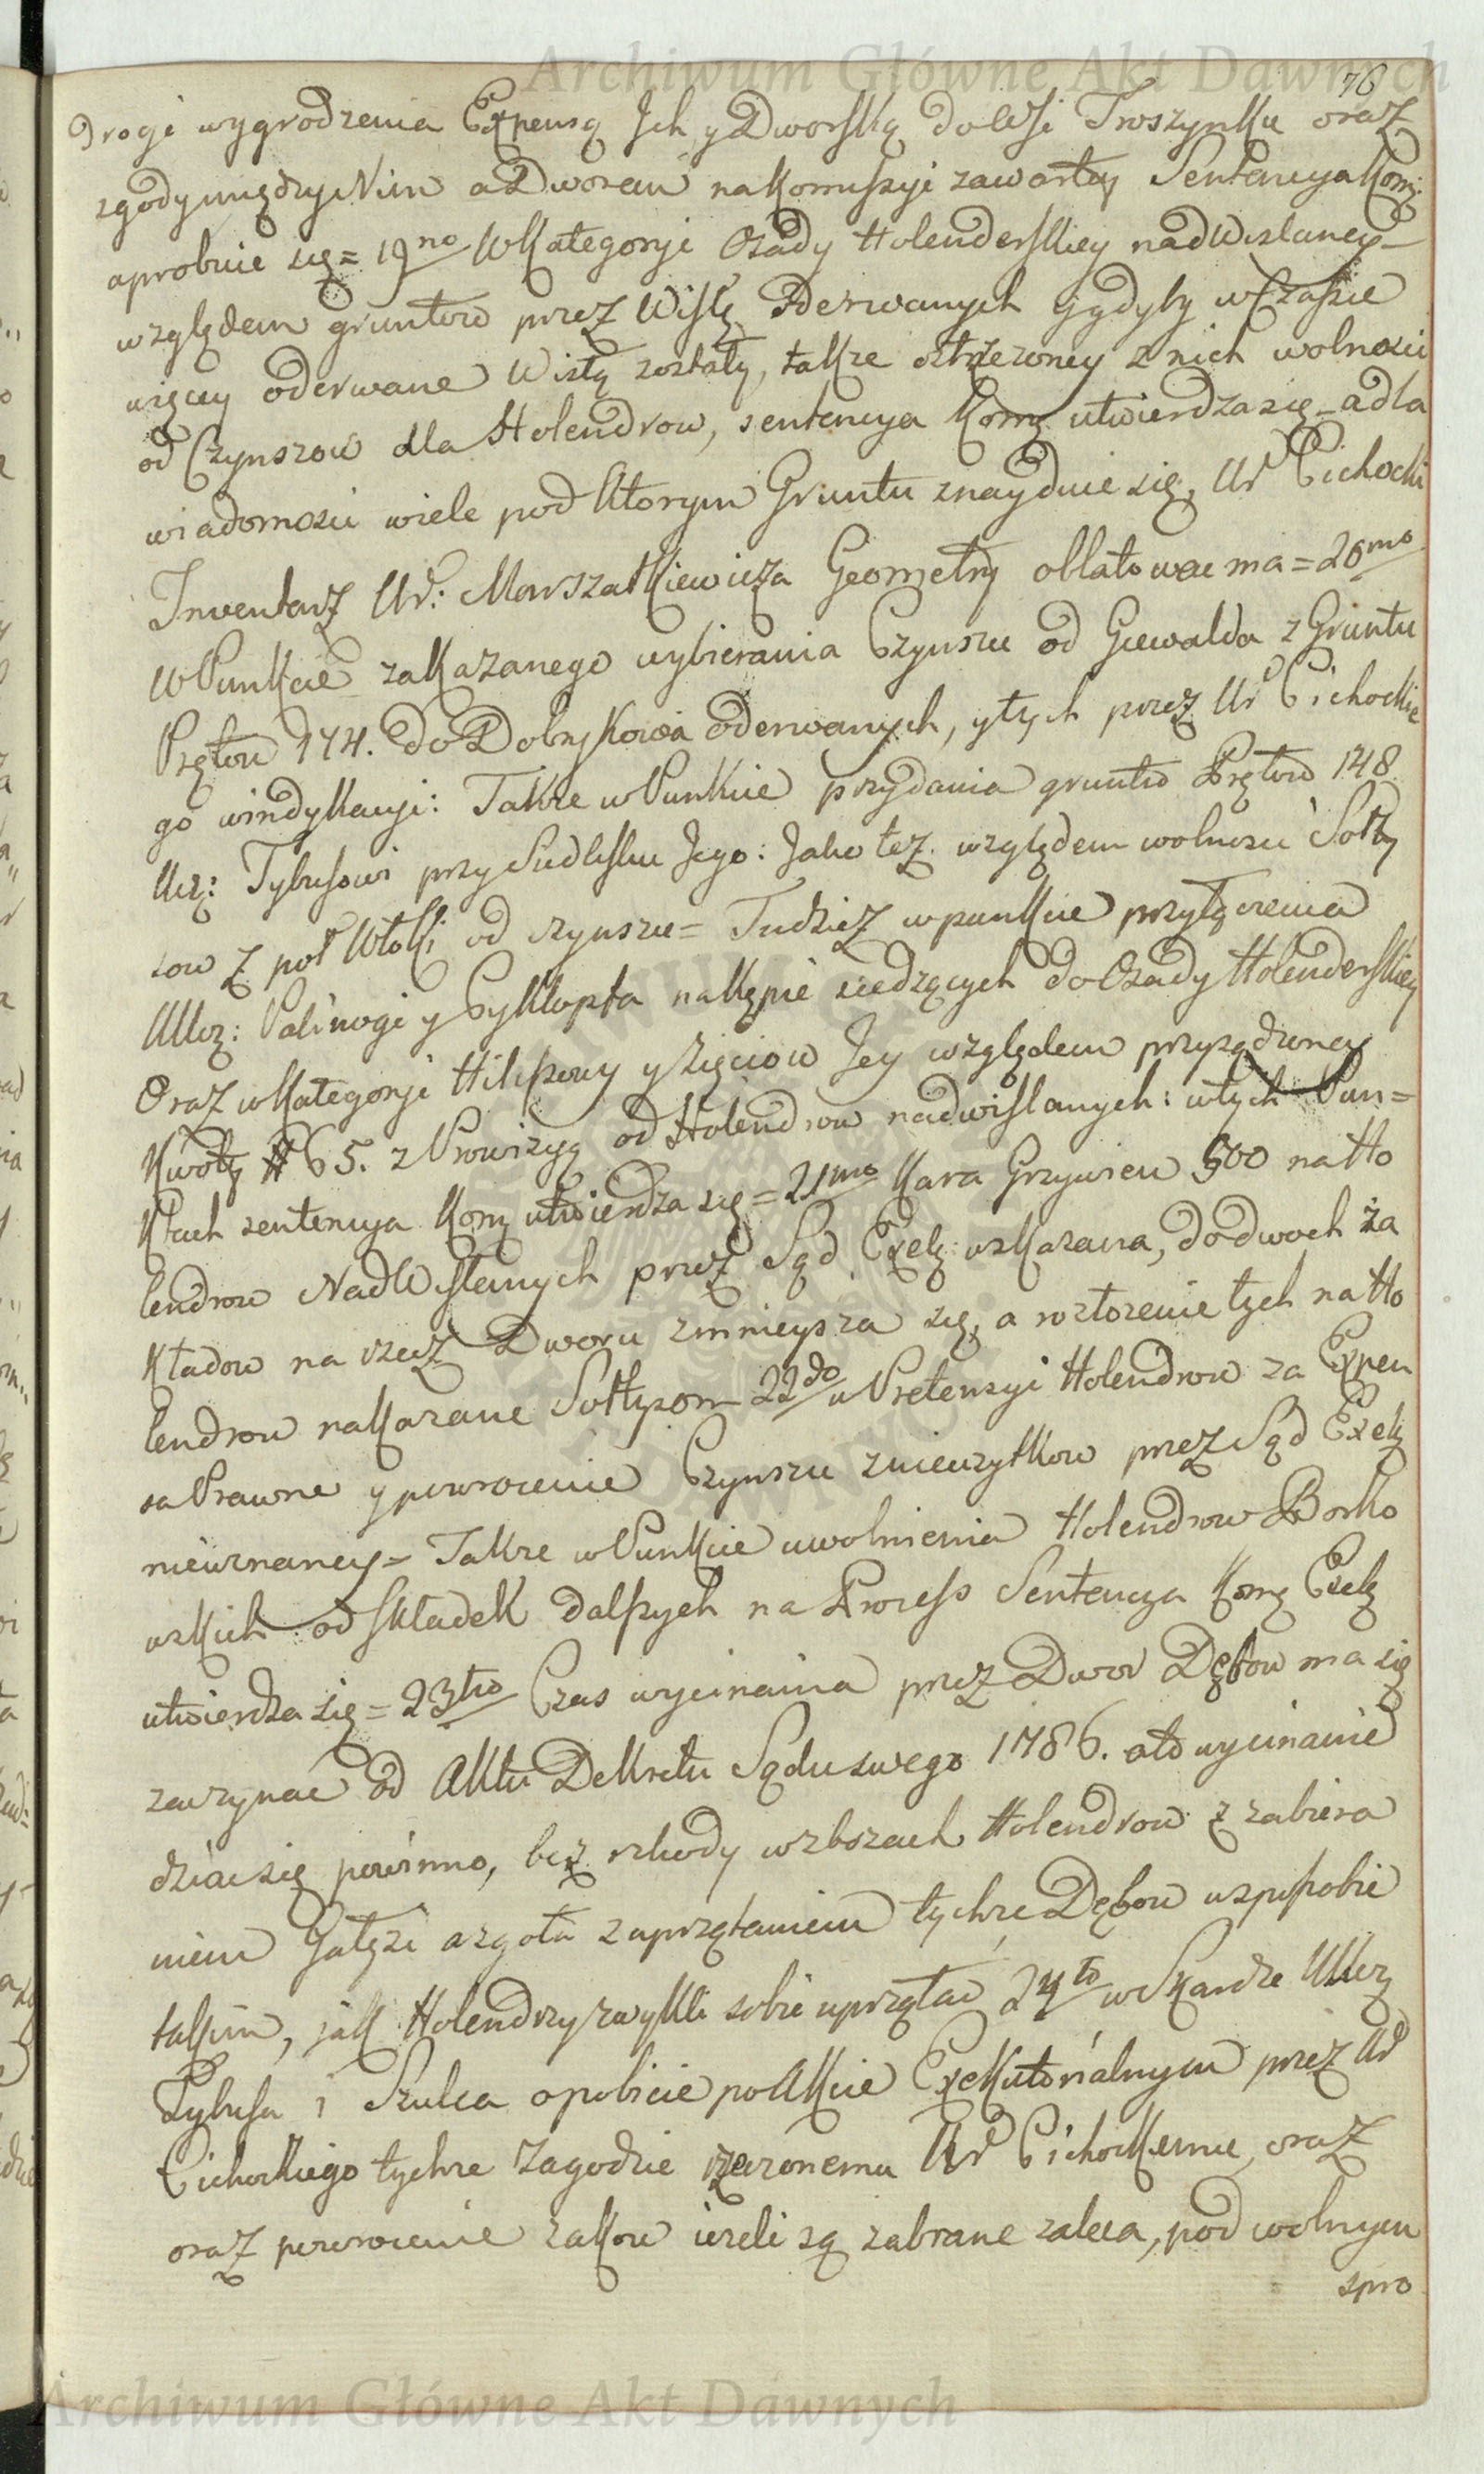 Archiwum Główne Akt Dawnych
76
Drogi wygrodzenia Expensą Ich y Dworską do Wsi Troszynku oraz
zgody między Nim a Dworem na Kommissyi zawartey Sentencya Komi:
aprobuie się = 19no W Kategoryi Osady Holenderskiey nadwislaney
względem gruntow przez Wisłę oderwanych gdyby w Czasie
więcey oderwane Wisłą zostały, także ostrzeżoney z nich wolności
od Czynszow dla Holendrow, sentencya Komi utwierdza się a dla
wiadomosci wiele pod ktorym Gruntu znayduie się, Ur Cichocki
Inwentarz Ur: Marszałkiewicza Geometry oblatować ma = 20mo
W Punkcie zakazanego wybierania Czynszu od Giewalda z Gruntu
Prętow 174. do Dobrzykowa oderwanych, y tych przez Ur Cichockie
go windykacyi: Także w Punkcie przydania gruntu Prętow 148
Ucz: Tybusowi przy Siedlisku Jego: Jako też względem wolnosci Sołty
sow z poł Włoki od czynszu = Tudzież w punkcie przyłączenia
UUcz: Palinogi y Cyklopfa na Kępie siedzących do Osady Holenderskiey
Oraz w Kategoryi Hilkowy y Zięciow Jey względem przysądzoney
Kwoty # 65. z Prowizyą od Holendrow nadwislanych: w tych Pun=
Ktach sentencya Komi utwierdza się = 21mo Kara Grzywien 500 na Ho
lendrow Nad Wislanych przez Sąd Exek: wskazana, do dwoch za
Kładow na rzecz Dworu zmnieysza się, a rozłożenie tych na Ho
lendrow nakazane Sołtysom 22do w Pretensyi Holendrow za Expen
sa Prawne y powrocenie Czynszu z nieużytkow przez Sąd Exek
nieuznaney = Także w Punkcie uwolnienia Holendrow Borko
wskich od składek dalszych na Process Sentencya Komi Exek
utwierdza się = 23tio Czas wycinania przez Dwor Dębow ma się
zaczynać od Aktu Dekretu Sądu swego 1786. a to wycinanie
dziać się powinno, bez szkody w zbożach Holendrow z zabiera
niem Gałęzi a zgoła z uprzątaniem tychże Dębow w sposobie
takim, jak Holendrzy zwykli sobie uprzątać 24to w Skardze UUcz
Tybusa i Szulca o pobicie po Akcie Exekutorialnym przez Ur
Cichockiego tychże zagodzie rzeczonemu Ur Cichockiemu, oraz
oraz powrocenie zakow ieżeli są zabrane zaleca, pod wolnym
spro
Archiwum Główne Akt Dawnych